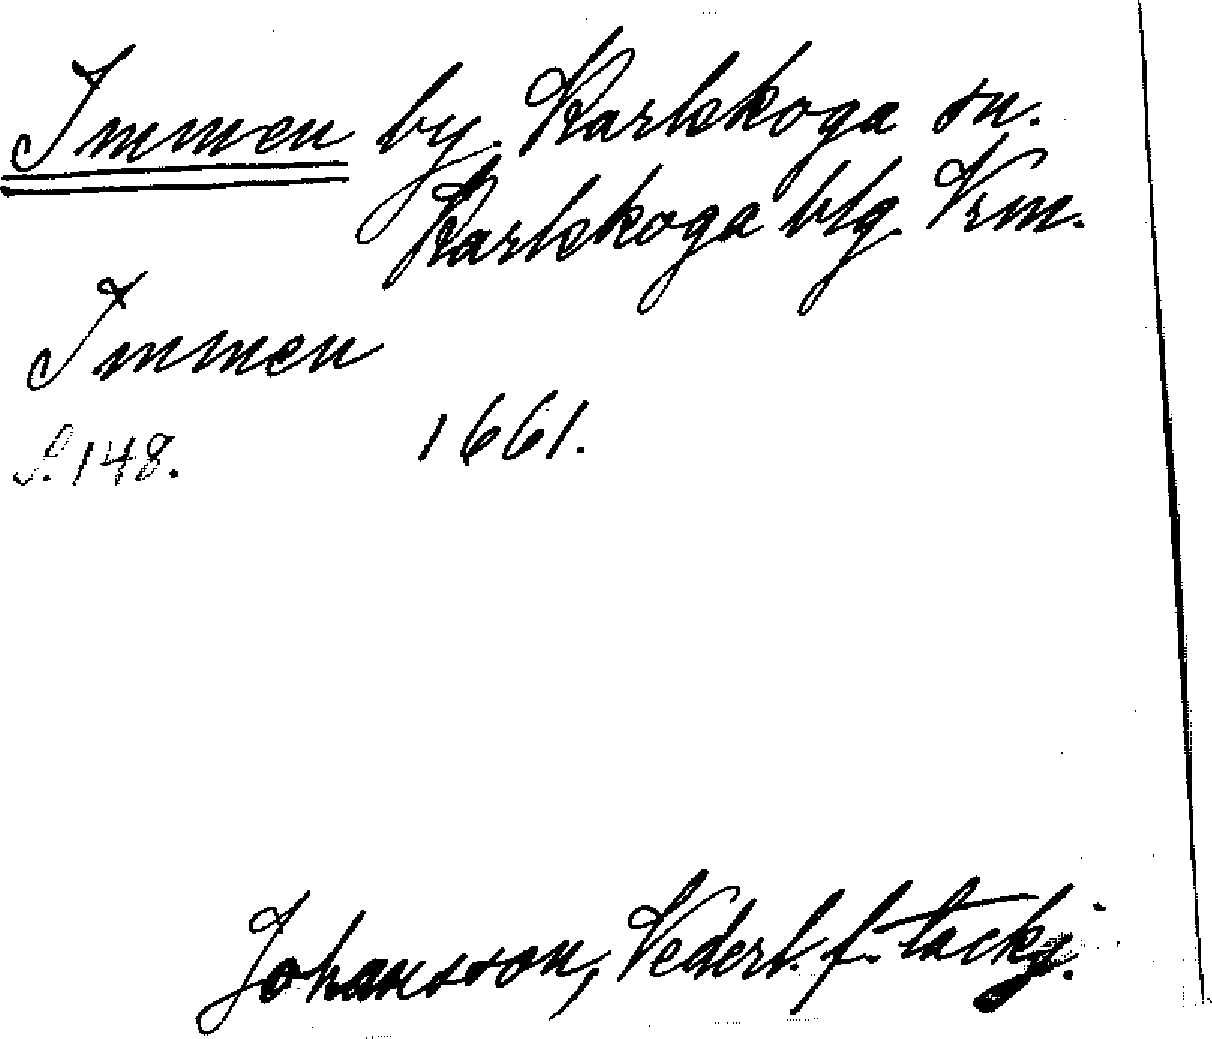 Immen by. Karlskoga sn.
Karlskoga blg. Vrm.
Immen
S. 148. 1661.
Johansson, Vederl. f. tackj.